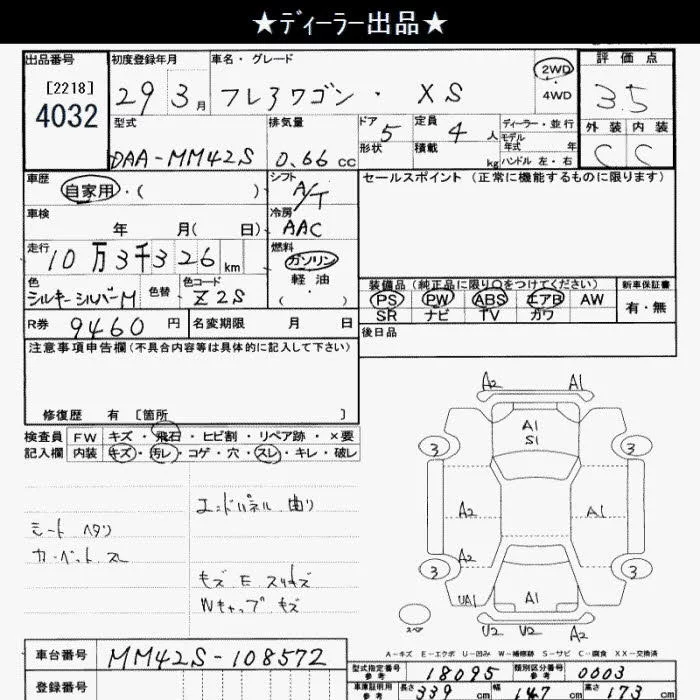 ★ディーラー出品★
出品番号
[2218]
4032
初度登録年月
29年 3月
車名・グレード
フレアワゴン・ XS
2WD
4WD
評価点
3.5
型式
DAA-MM42S
排気量
0.66 cc
ドア 5
形状
定員 4 人
積載 kg
ディーラー・並行
モデル
年式 年
ハンドル 左・右
外装 内装
C C
車歴
自家用・( )
シフト
A/T
セールスポイント(正常に機能するものに限ります)
車検
年 月( 日)
冷房
AAC
走行
10万3千326 km
燃料
ガソリン
軽油
( )
色
シルキーシルバーM
色替
色コード
Z2S
装備品(純正品に限り○をつけてください)
PS PW ABS エアB AW
SR ナビ TV カワ
新車保証書
有・無
R券 9460 円
名変期限 月 日
後日品
注意事項申告欄(不具合内容等は具体的に記入して下さい)
修復歴 有 [箇所 ]
検査員
記入欄
FW キズ・飛石・ヒビ割・リペア跡・×要
内装 キズ・汚レ・コゲ・穴・スレ・キレ・破レ
エンドパネル 曲り
シート ヘタリ
カーペット スレ
キズ E スリキズ
Wキャップ キズ
A2 A1
A1
S1
3 3
A2 A1
A2
3 3
UA1 A1
スペア
U2 U2 A2
A-キズ E-エクボ U-凹み W-補修跡 S-サビ C-腐食 XX-交換済
車台番号 MM42S-108572
登録番号
型式指定番号
参考
18095
類別区分番号
参考
0003
車庫証明用
参考
長さ 339 cm
幅 147 cm
高さ 173 cm